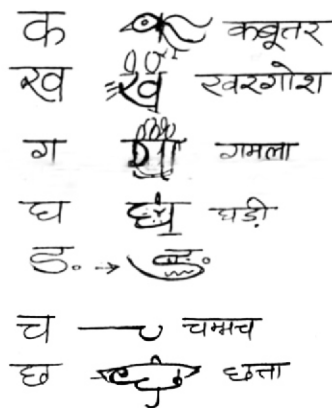 क कबूतर
ख ख खरगोश
ग ग गमला
घ घ घड़ी
ङ. → ङ.
च चम्मच
छ छ छत्ता